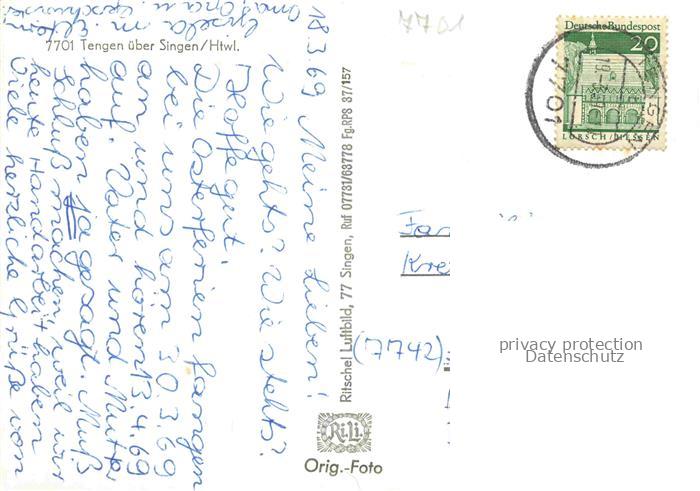 7701
7701 Tengen über Singen/Htwl.
18.3.69 Meine Lieben!
Wie gehts? Wie stehts?
Hoffe gut.
Die Osterferien fangen
bei uns am 30.3.69
an und hören 13.4.69
auf. Vater und Mutter
haben Ja gesagt. Muß
Schluß machen, weil wir
heute Handarbeit haben
Viele herzliche Grüße von
Gisela m. Eltern
Oma, Opa u. Geschwister
Ritschel Luftbild, 77 Singen, Ruf 07731/68778 Fg.RPS 87/157
Ri.Li.
Orig.-Foto
Deutsche Bundespost
20
LORSCH/HESSEN
7701
Fa
Kre
(7742)
privacy protection
Datenschutz